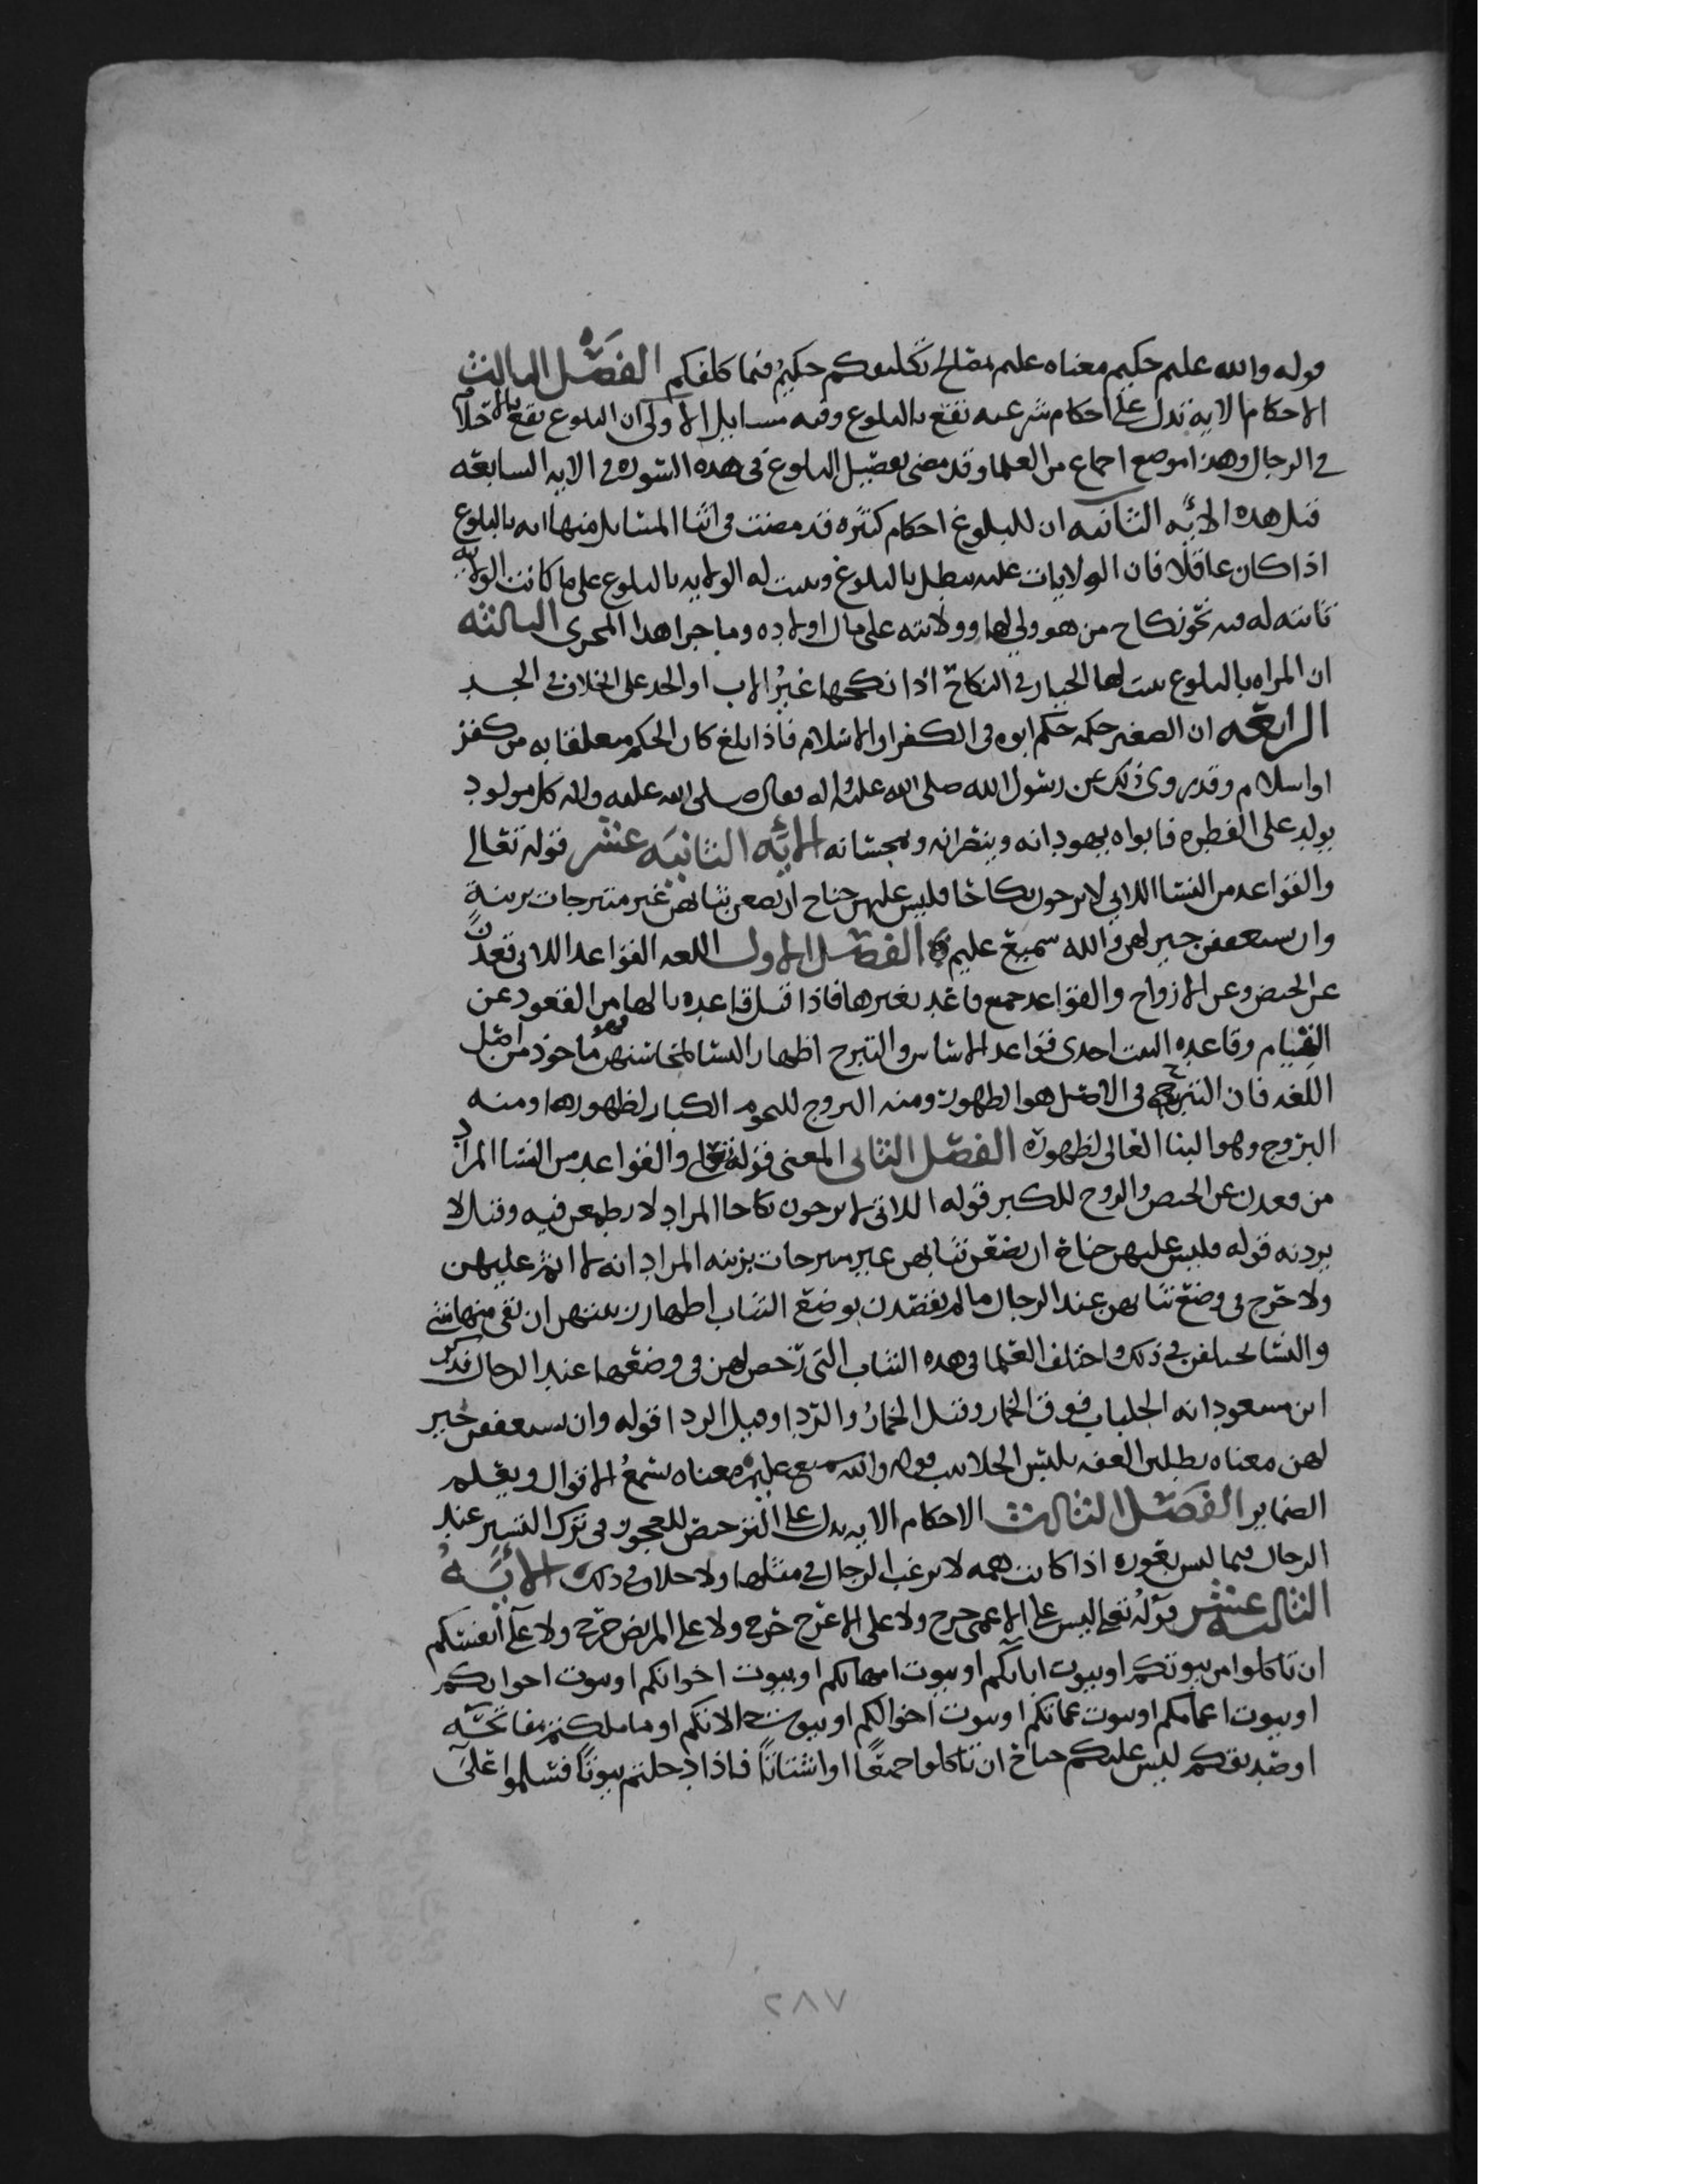 قوله والله عليم حكيم معناه عليم بمصالح تكليفكم حكيم فيما كلفكم الفصل الثالث
الاحكام الايه تدل على احكام شرعيه تقع بالبلوغ وفيه مسايل الاولى ان البلوغ يقع بالاحتلام
في الرجال وهذا موضع اجماع من العلما وقد مضى تفصيل البلوغ في هذه السوره في الايه السابقه
قبل هذه الايه الثانيه ان للبلوغ احكام كثيره قد مضت في اثنا المسايل منها انه بالبلوغ
اذا كان عاقلا فان الولايات عليه تبطل بالبلوغ وثبت له الولايه بالبلوغ على ما كانت الولايه
ثابته له فيه نحو نكاح من هو ولي لها وولايته على مال اولاده وما جرا هذا المجرى الثالثه
ان المراه بالبلوغ يثبت لها الخيار في النكاح اذا نكحها غير الاب او الجد على الخلاف في الجد
الرابعه ان الصغير حكمه حكم ابوه في الكفر او الاسلام فاذا بلغ كان الحكم معلقا به من كفر
او اسلام وقد روي ذلك عن رسول الله صلى الله عليه واله فقال صلى الله عليه واله كل مولود
يولد على الفطره فابواه يهودانه وينصرانه ويمجسانه الايه الثانيه عشر قوله تعالى
والقواعد من النسا اللاتي لا يرجون نكاحا فليس عليهن جناح ان يضعن ثيابهن غير متبرجات بزينة
وان يستعففن خير لهن والله سميع عليم الفصل الاول اللغه القواعد اللاتي قعدن
عن الحيض وعن الازواج والقواعد جمع قاعد بغير ها فاذا قيل قاعده بالها من القعود عن
القيام وقاعده البيت احدى قواعد الاساس والتبرج اظهار النسا لمحاسنهن وهو ماخوذ من اصل
اللغه فان التبرج في الاصل هو الظهور ومنه البروج للنجوم الكبار لظهورها ومنه
البروج وهو البنا العالي لظهوره الفصل الثاني المعنى قوله تعالى والقواعد من النسا المراد
من قعدن عن الحيض والزوج للكبر قوله اللاتي لا يرجون نكاحا المراد لا يطمعن فيه وقيل لا
يردنه قوله فليس عليهن جناح ان يضعن ثيابهن غير متبرجات بزينه المراد انه لا اثم عليهن
ولا حرج في وضع ثيابهن عند الرجال ما لم يقصدن بوضع الثياب اظهار زينتهن ان بقي منها شي
والنسا يختلفن في ذلك واختلف العلما في هذه الثياب التي رخص لهن في وضعها عند الرجال فذكر
ابن مسعود انه الجلباب فوق الخمار وقيل الخمار والردا وقيل الردا قوله وان يستعففن خير
لهن معناه يطلبن العفه بلبس الجلابيب قوله والله سميع عليم معناه يسمع الاقوال ويعلم
الضماير الفصل الثالث الاحكام الايه يدل على الترخيص للعجوز في ترك التستر عند
الرجال فيما ليس بعوره اذا كانت همه لا يرغب الرجال في مثلها ولا خلاف في ذلك الايه
الثالثه عشر قوله تعالى ليس على الاعمى حرج ولا على الاعرج حرج ولا على المريض حرج ولا على انفسكم
ان تاكلوا من بيوتكم او بيوت ابايكم او بيوت امهاتكم او بيوت اخوانكم او بيوت اخواتكم
او بيوت اعمامكم او بيوت عماتكم او بيوت اخوالكم او بيوت خالاتكم او ما ملكتم مفاتحه
او صديقكم ليس عليكم جناح ان تاكلوا جميعا او اشتاتا فاذا دخلتم بيوتا فسلموا على
٢٨٧